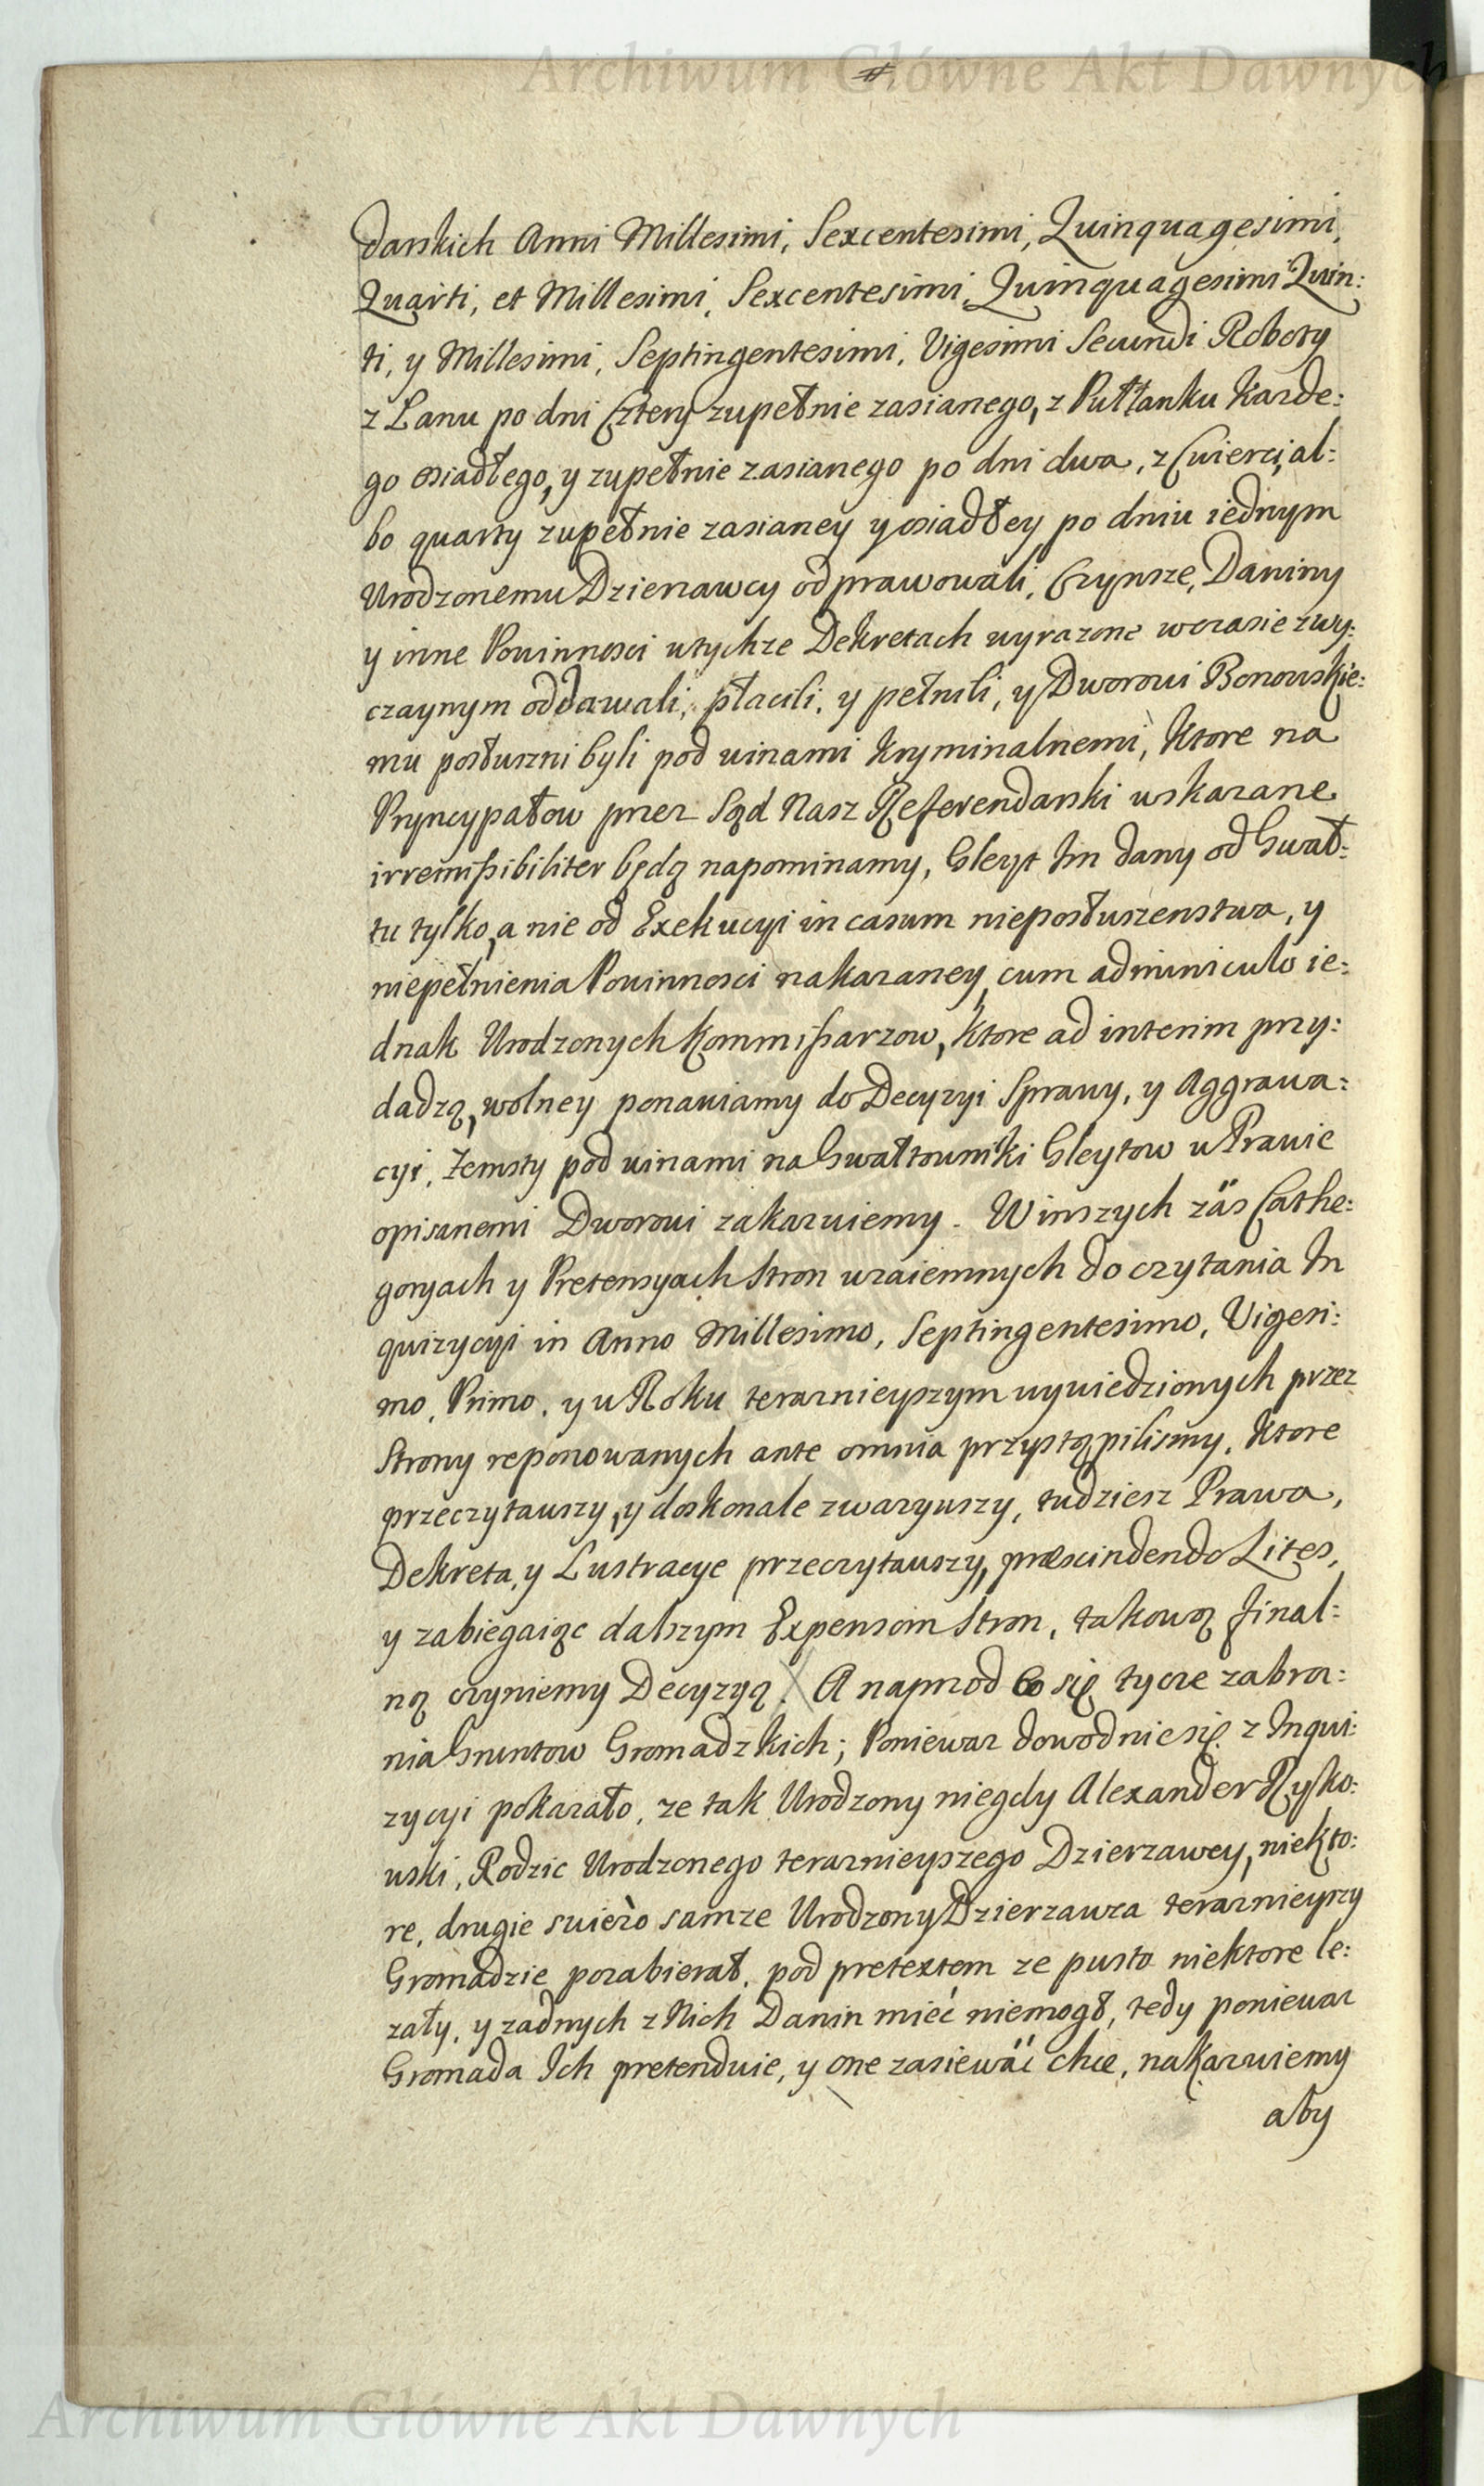 Archiwum Główne Akt Dawnych
#
darskich Anni Millesimi, Sexcentesimi, Quinquagesimi,
Quarti, et Millesimi, Sexcentesimi, Quinquagesimi Quin:
ti, y Millesimi, Septingentesimi, Vigesimi Secundi Roboty
z Lanu po dni Cztery zupełnie zasianego, z Pułłanku Kazde:
go osiadłego, y zupełnie zasianego po dni dwa, z Cwierci, al:
bo quarty zupełnie zasianey y osiadłey po dniu iednym
Urodzonemu Dzierzawcy odprawowali, Czynsze, Daniny
y inne Powinnosci wtychze Dekretach wyrazone wczasie zwy:
czaynym oddawali, płacili, y pełnili, y Dworowi Bonowskie:
mu posłuszni byli pod winami Kryminalnemi, Ktore na
Pryncypałow przez Sąd Nasz Referendarski wskazane
irremissibiliter będą napominamy, Gleyt Im dany od Gwał:
tu tylko, a nie od Exekucyi in casum nieposłuszenstwa, y
niepełnienia Powinnosci nakazaney, cum adminiculo ie:
dnak Urodzonych Kommissarzow, Ktore ad interim przy:
dadzą, wolney ponawiamy do Decyzyi Sprawy, y Aggrawa:
cyi, Zemsty pod winami na Gwałtowniki Gleytow w Prawie
opisanemi Dworowi zakazuiemy. W inszych zäs Cathe:
goryach y Pretensyach Stron wzaiemnych do czytania In
quizycyi in Anno Millesimo, Septingentesimo, Vigesi:
mo, Primo, y w Roku teraznieyszym wywiedzionych przez
Strony reponowanych ante omnia przystąpilismy, Ktore
przeczytawszy, y doskonale zwazywszy, tudziesz Prawa,
Dekreta, y Lustracye przeczytawszy, præscindendo Lites,
y zabiegaiąc dalszym Expensom Stron, takową final:
ną czyniemy Decyzyą. X A naprzod Co się tycze zabra:
nia Gruntow Gromadzkich; Poniewaz dowodnie się z Inqui:
zycyi pokazało, ze tak Urodzony niegdy Alexander Rysko:
wski, Rodzic Urodzonego teraznieyszego Dzierzawcy, niekto:
re, drugie swiezo samze Urodzony Dzierzawca teraznieyszy
Gromadzie pozabierał, pod pretextem ze pusto niektore le:
zały, y zadnych z Nich Danin mieć niemogł, tedy poniewaz
Gromada Ich pretenduie, y one zasiewäć chce, nakazuiemy
aby
Archiwum Główne Akt Dawnych